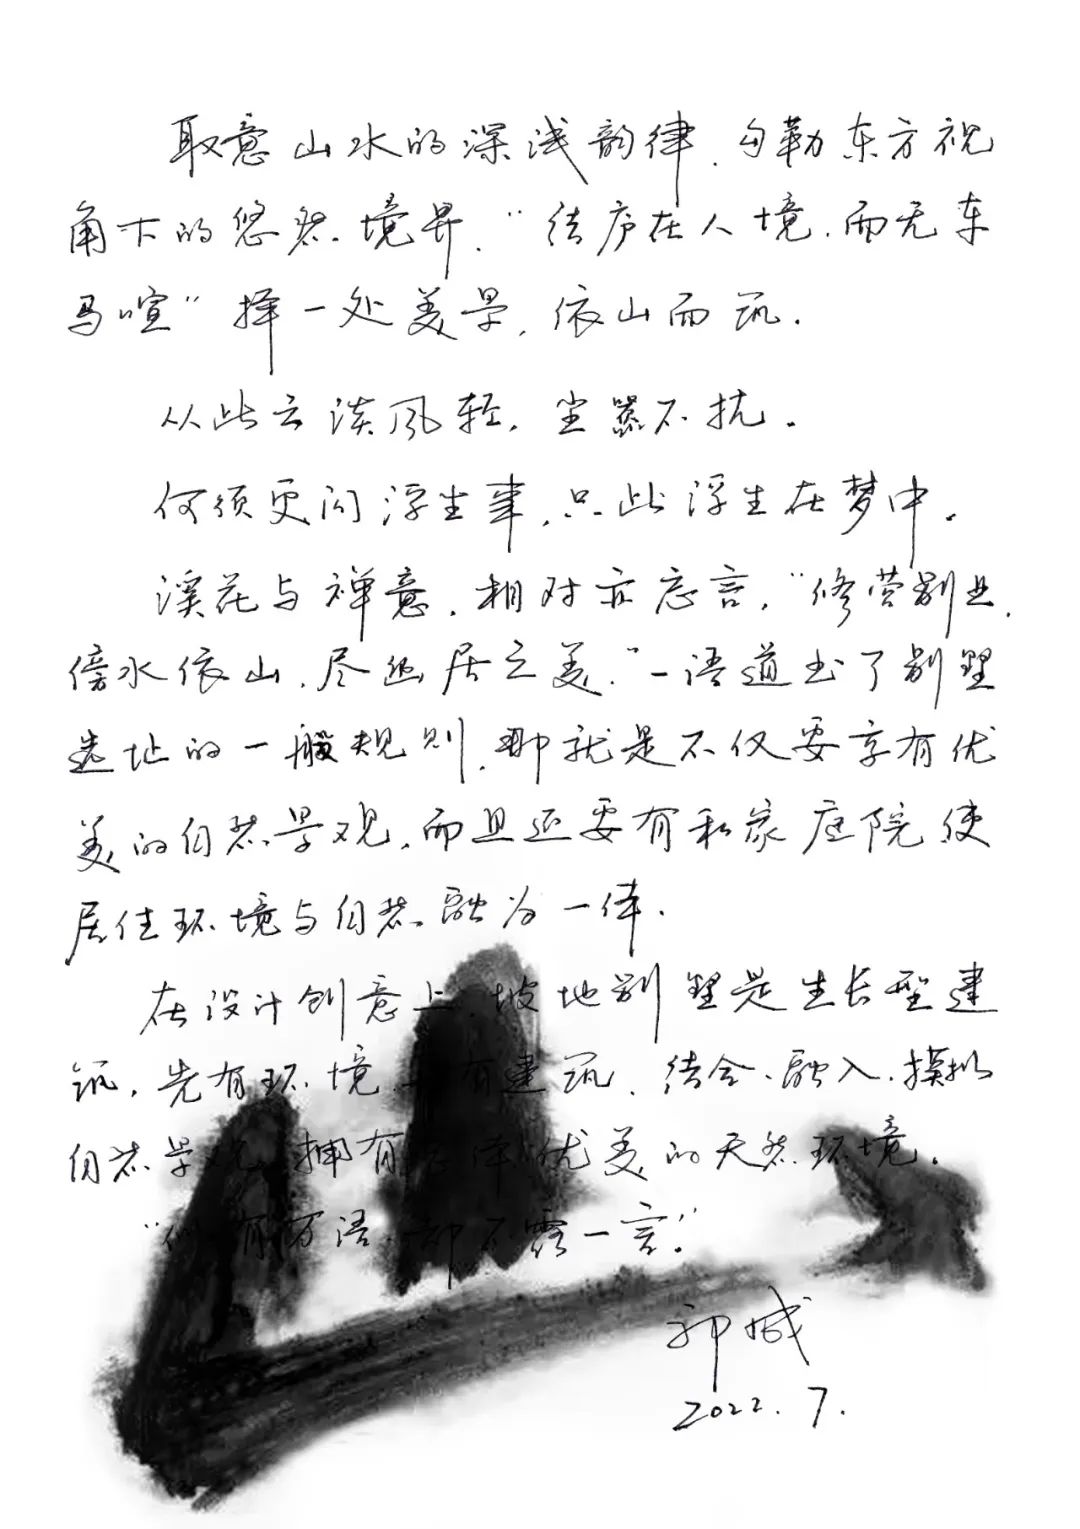 取意山水的深浅韵律，勾勒东方视
角下的悠然境界，“结庐在人境，而无车
马喧”择一处美景，依山而筑.
从此云淡风轻，尘嚣不扰。
何须更问浮生事，只此浮生在梦中。
溪花与禅意，相对亦忘言，“修营别业，
傍水依山，尽幽居之美，”一语道出了别墅
选址的一般规则，那就是不仅要享有优
美的自然景观，而且还要有私家庭院使
居住环境与自然融为一体.
在设计创意上，坡地别墅是生长型建
筑，先有环境，再有建筑，结合、融入、摸拟
自然景观，拥有 优美的天然环境。
“似有万语，却不露一言。”
2022.7.